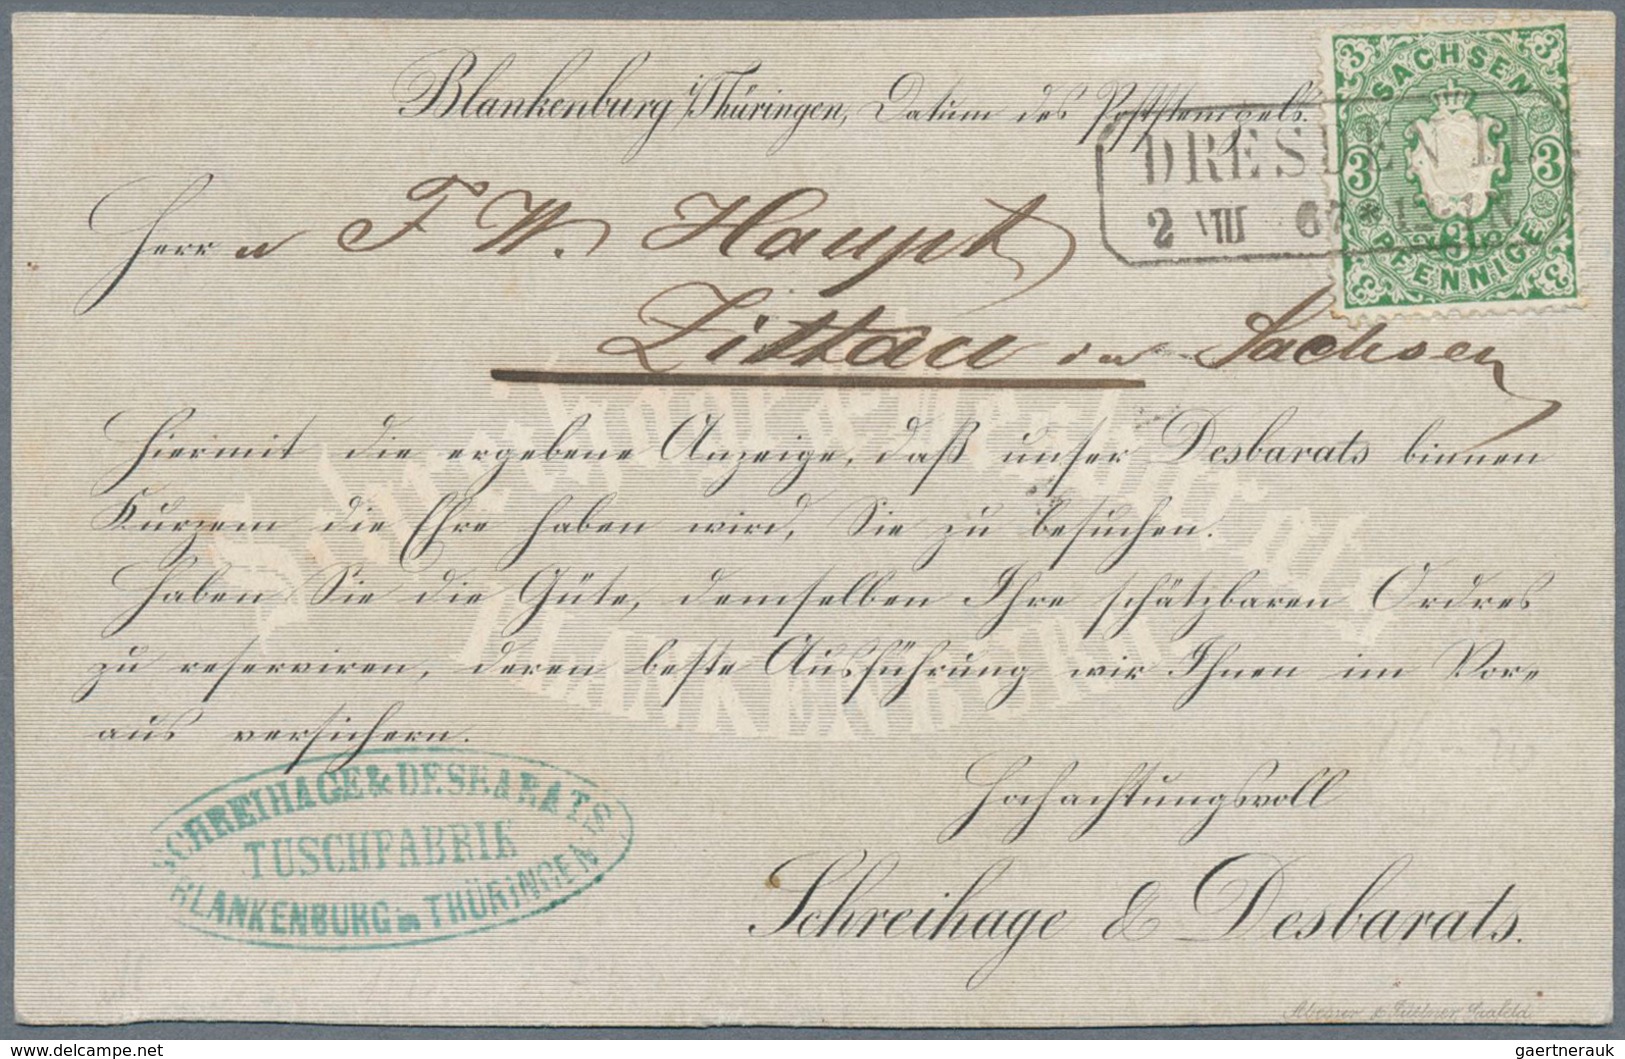 Blankenburg i/Thüringen, Datum des Poststempels.
3 SACHSEN 3
DRESDEN II.
3 3
2 VIII 67 *
3
PFENNIGE
3 3
Herrn F. W. Haupt
Zittau in Sachsen
Hiermit die ergebene Anzeige, daß unser Desbarats binnen
Kurzem die Ehre haben wird, Sie zu besuchen.
Haben Sie die Güte, demselben Ihre schätzbaren Ordres
zu reserviren, deren beste Ausführung wir Ihnen im Vor-
aus versichern.
Schreihage & Desbarats
BLANKENBURG
Hochachtungsvoll
Schreihage & Desbarats.
SCHREIHAGE & DESBARATS
TUSCHFABRIK
BLANKENBURG in THÜRINGEN
delcampe.net
gaertnerauk